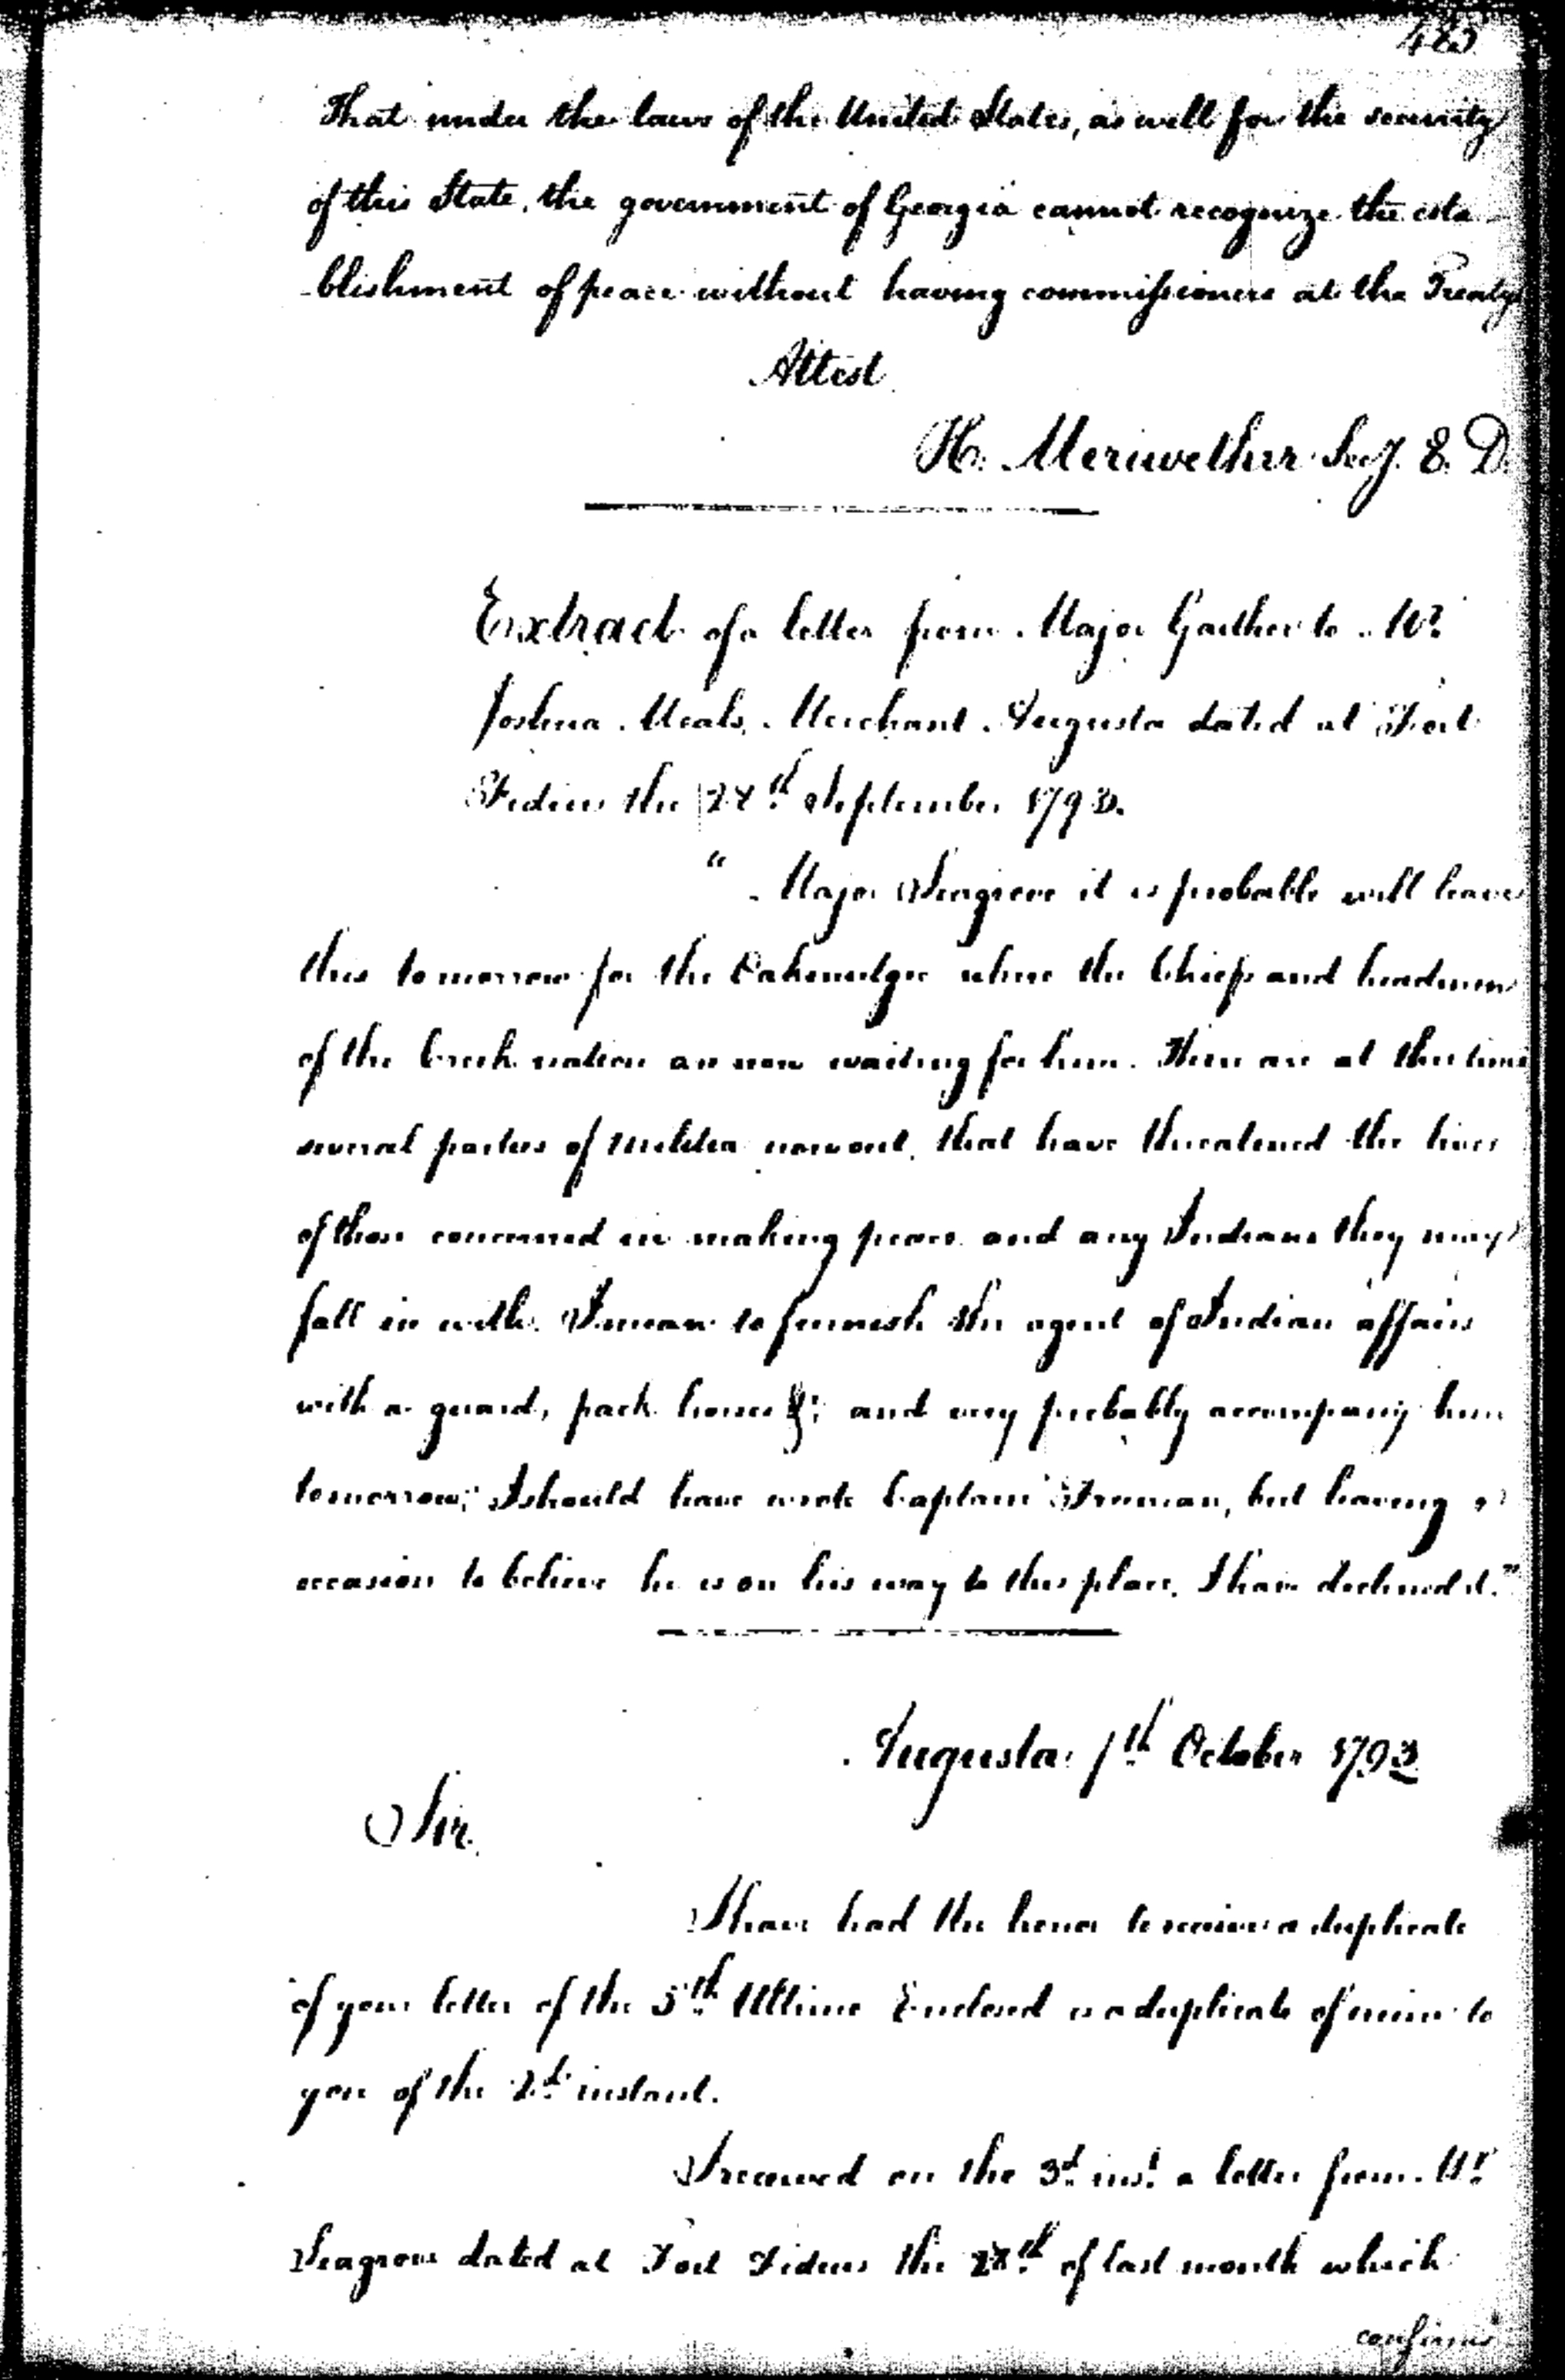 485
That under the laws of the United States, as well for the security
of this State, the government of Georgia cannot recognize the esta-
-blishment of peace without having commissioners at the Treaty
Attest.
H. Meriwether Secy. E. D.
Extract of a letter from Major Gaither to Mr.
Joshua Meals, Merchant Augusta dated at Fort
Fidius the 24th September 1793.
" Major Seagrove it is probable will leave
this tomorrow for the Oakmulgee where the Chiefs and headmen
of the Creek nation are now waiting for him. There are at this time
several parties of militia now out, that have threatened the lives
of those concerned in making peace and any Indians they may
fall in with. I mean to furnish the agent of Indian affairs
with a guard, pack horses &c; and very probably accompany him
tomorrow; I should have wrote Captain Freeman, but having
occasion to believe he is on his way to this place, I have declined it."
Augusta, th October 1793
Sir.
I have had the honor to receive a duplicate
of your letter of the 5th Ultimo Enclosed is a duplicate of mine to
you of the 2d instant.
I received on the 3d inst. a letter from Mr.
Seagrove dated at Fort Fidius the th of last month which
confirms